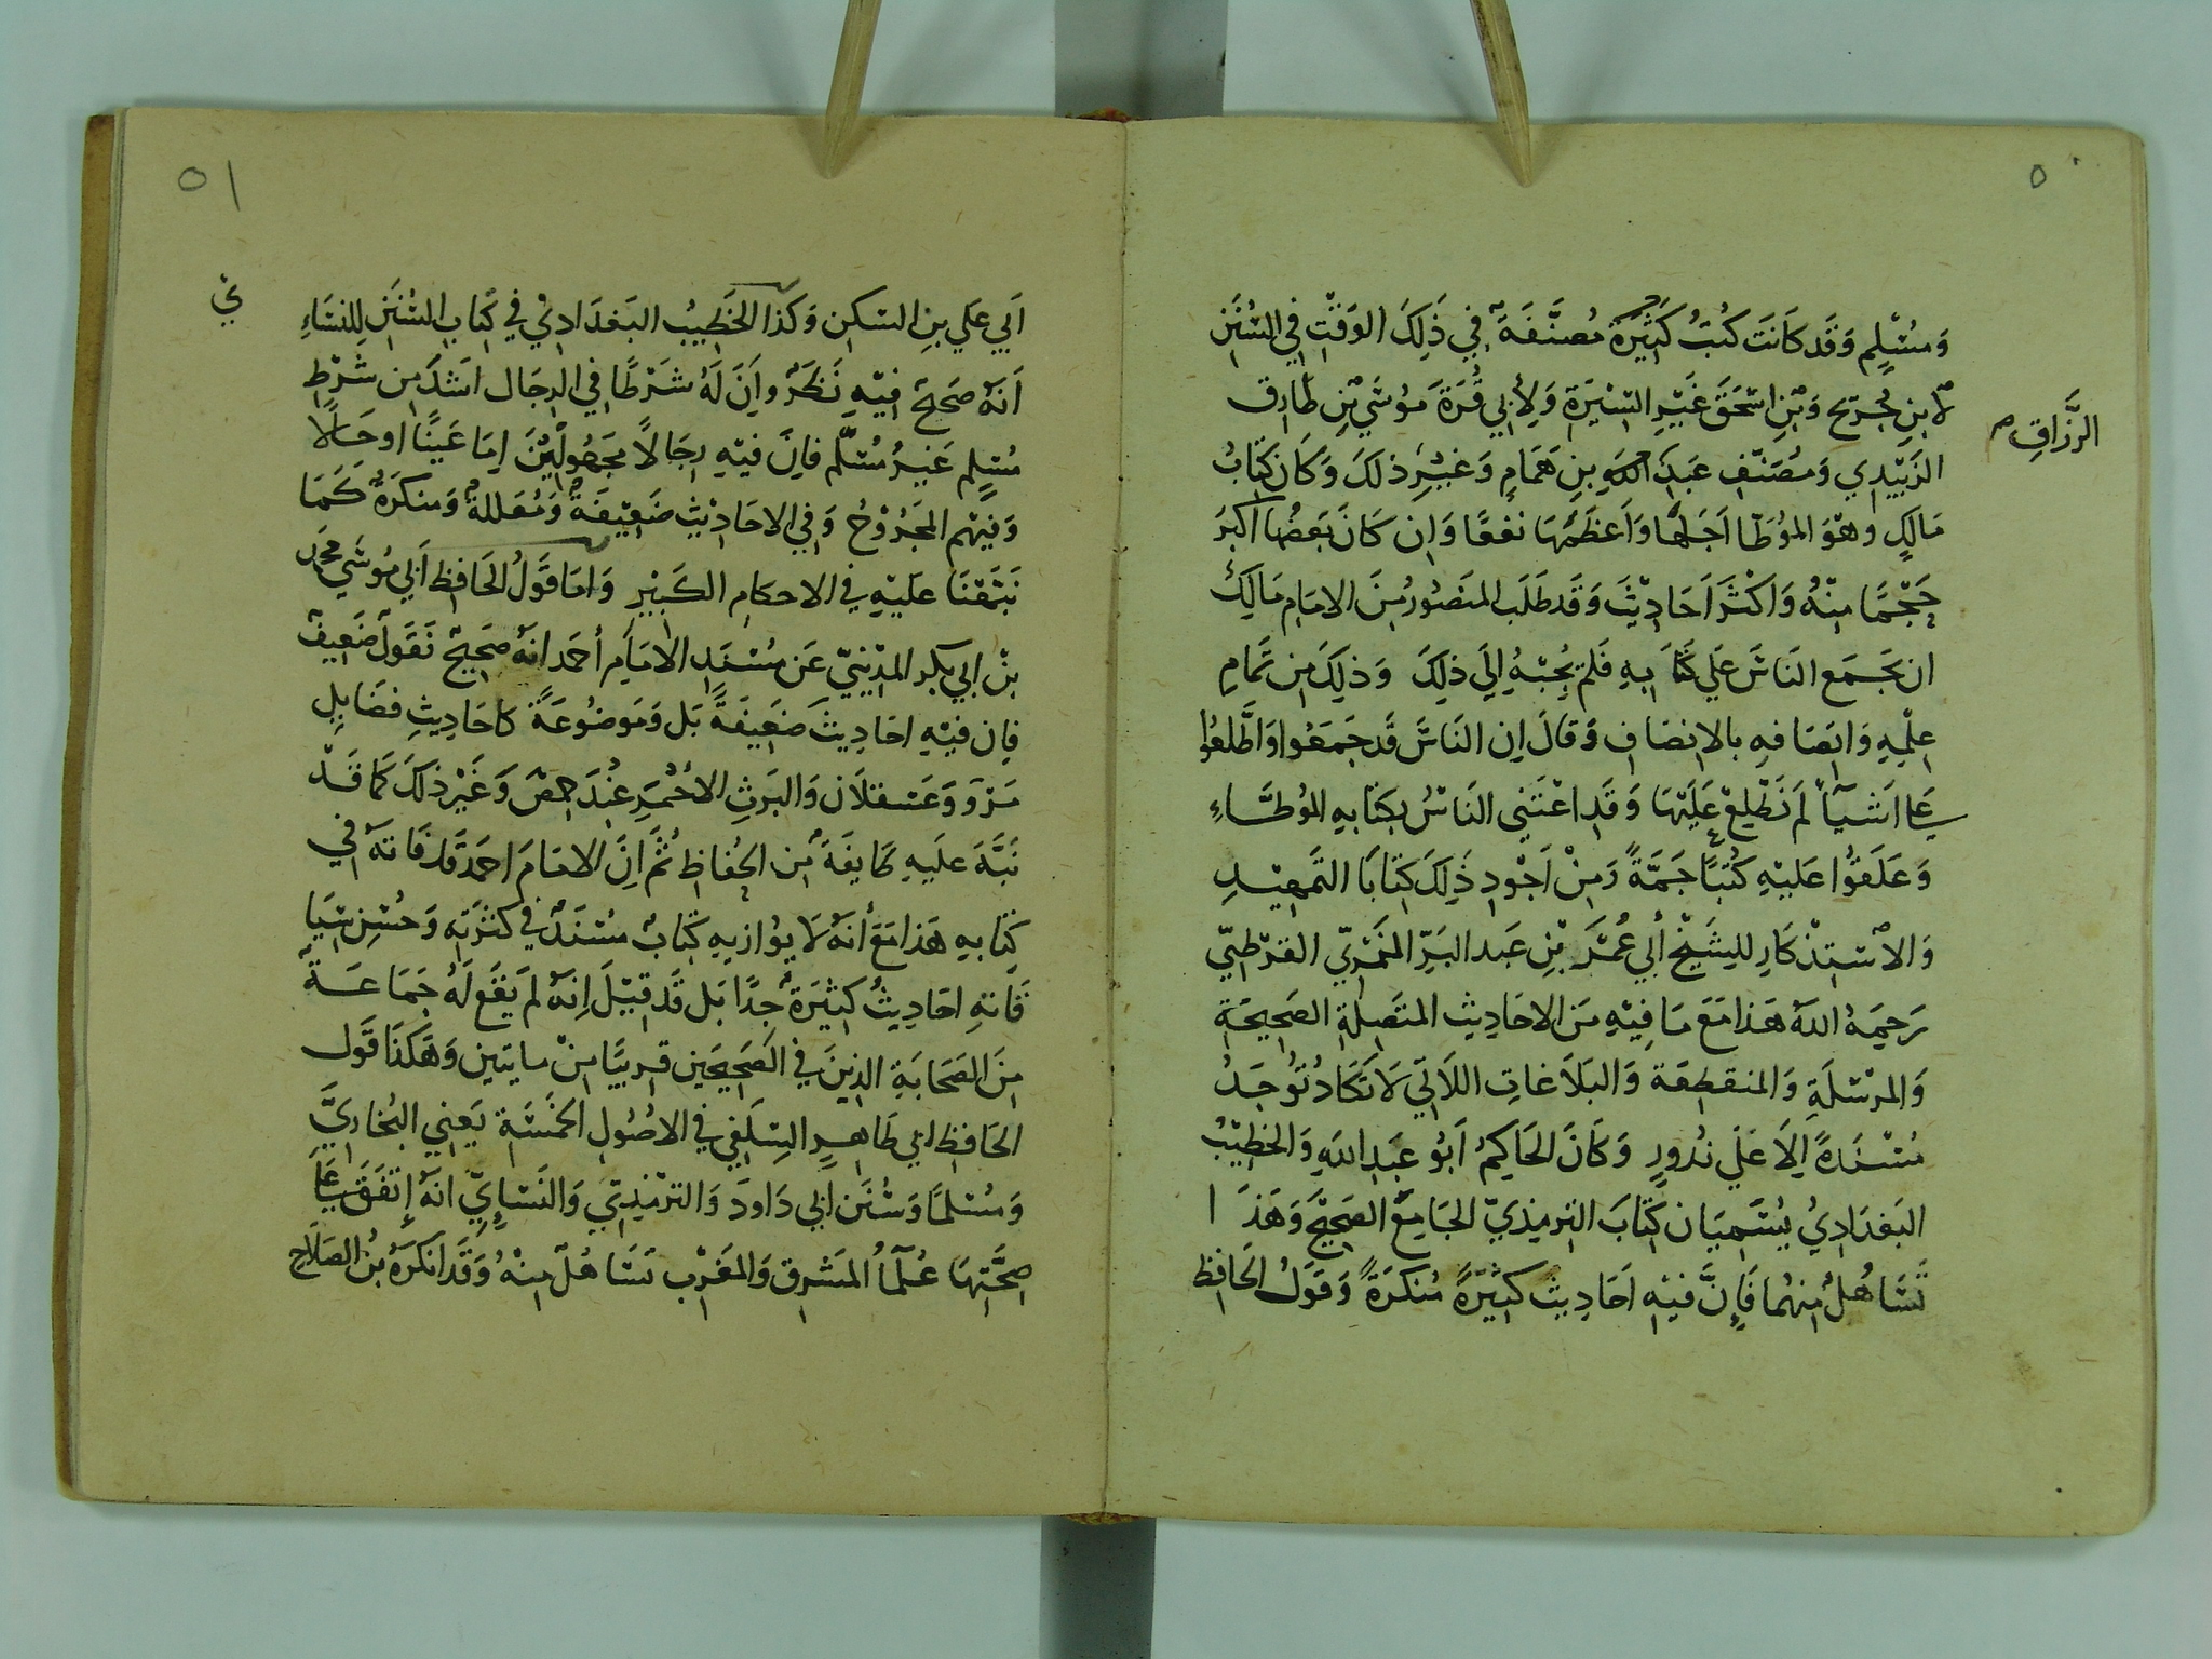 ٥٠
وَمُسْلِمٍ وَقَد كَانَت كُتُبُ كَثِيْرَة مُصَنَّفَة فِي ذَلِكَ الوَقْتِ فِي السُّنَنِ
لابنِ جُرَيج وَبْنِ اسْحَقَ غَيْرِ السِّيْرَةِ وَلِأَبِي قُرَةَ مَوُسَي بْنِ طَارِق
الزَبِيْدِي وَمُصَنَّفِ عَبدَ الله بنِ هَمَامٍ وَغَيْرِ ذلكَ وَكَان كِتَابُ
الرَّزَاقِ صح
مَالكٍ وهوَ المؤُطَا اَجَلهَا وَاَعظَمهَا نفعًا وَإن كَانَ بَعضُها اكبرَ
حَجْمًا مِنْهُ وَاكْثَرَ اَحَادِيْثَ وَقَد طَلَب المنصُورُ مِنَ الامَامِ مَالِكُ
ان يَجمَع النَاسَ عَلي كتَابهِ فَلم يُجْبْهُ اِلَي ذلِكَ وَذلِكَ مِن تَمَامِ
عِلْمِهِ وَاتِصَافهِ بالانصَافِ وَقالَ إن النَاسَّ قَد جَمَعُوا وَاطَّلعُوا
عَلي اَشيَآءَ لَم نَطْلِعْ عَلَيْهَا وَقَدِ اعْتَنِي النَاسُ بِكتَابهِ المُوطَّاءِ
وَعَلَقوُا عَليْهِ كُتبًا جَمَّةً وَمِنْ اَجْودِ ذَلِكَ كتَابَا التَمهِيْدِ
وَالاسْتِذْكَارِ للِشَيْخْ أبي عُمْرَ بْنِ عَبد البَرِّ النَمْرِيّ القرْطبيّ
رَحِمَهُ اللهُ هَذا مَعَ مَا فِيْهِ مَنَ الاحَادِيْثِ المتَصِلةِ الصَحِيحَة
وَالمرْسَلَةِ وَالمنقطِعَة وَالبَلاَغاتِ اللَاتي لاَ تَكَادُ تُوُجَدُ
مُسْنَدةً اِلاَ عَلَي نُدُورٍ وَكَانَ الحَاكِمُ اَبُو عَبدِ اللهِ وَالخطِيْبُ
البَغدَادِيُ يُسَمِيَان كِتَابَ التِرمِذيّ الجَامِعْ الصَحِيْحَ وَهَذَا
تَسَاهُلٌ مِنهُما فَإنَّ فيْهِ اَحَادِيث كَثِيْرَةً مُنكَرَةً وَقوَلُ الحَافظ
٥١
اَبي عَلي بنِ السَكن وَكذَا الخَطِيبُ البَغدَادِيُ في كِتَابِ السُّنَنِ للنسَاءِي
اَنهُ صَحيحٌ فِيْهِ نَظَرٌ وإَنَ لَهُ شَرْطًا في الرجَال اشدَ مِن شَرْطِ
مُسْلِم غَيرُ مُسَلَّم فاِنَّ فيْهِ رِجَالاً مَجهُولِيْنَ اِمَا عَيْنًا او حَالًا
وَفيْهم المجرُوْحُ وَفي الاحَادِيْثِ ضَعِيْفَةٌ وَمُعَللةٌ وَمنكرَةٌ كَمَا
نَبَّهْنَا عليْهِ في الاحكَامِ الكَبِيْرِ وَامَا قَوَلُ الحَافِظ اَبي مُوسَي محمد
بنْ ابي بكر المدِيْنيّ عَن مُسْنَدِ الامَامِ أحمَد انهُ صَحِيحْ فَقَولٌ ضَعِيفٌ
فإن فيْهِ احَادِيثَ ضَعِيفَةً بَل وَمَوضُوعَةً كاحَادِيثِ فضَايلِ
مَرْوَ وَعَسقلَان وَالبَرثِ الأحْمَرِ عِنْدَ حِمصْ وَغَيْرِ ذلكَ كما قَدْ
نَبَّهَ عليَهِ طَايفَةٌ مِن الحُفاظِ ثُمَّ اِنَّ الامَامَ احمدَ قَد فَاتهُ في
كِتَابهِ هَذا مَعَ أنهُ لَا يوُازيهِ كِتَابٌ مُسْنَدٌ في كثرَتِهِ وَحُسْنِ سِيَا
قَاتهِ احَادِيثُ كَثِيْرَةٌ جِدًّا بَل قَد قِيْلَ اِنهُ لَم يَقَع لَهُ جَمَاعَةٌ
مِنَ الصَحَابَةِ الذِينَ في الصَحِيحَين قرِيبًا مِنْ مايتَين وَهكذَا قَول
الحَافِظ ابي طَاهِرٍ السِلَفِي في الاصُولِ الخمسَة يَعنِي البُخاريَّ
وَمُسْلمًا وَسُنَن ابي دَاودَ وَالترْمِذيّ وَالنَسَاءِيّ انهُ اِتفَقَ عَلَي
صِحَّتِهَا عُلمآُ المَشرِق وَالمغَرْب تَسَاهُلٌ مِنهُ وَقَد انكَرَهُ بنُ الصَلَاحِ